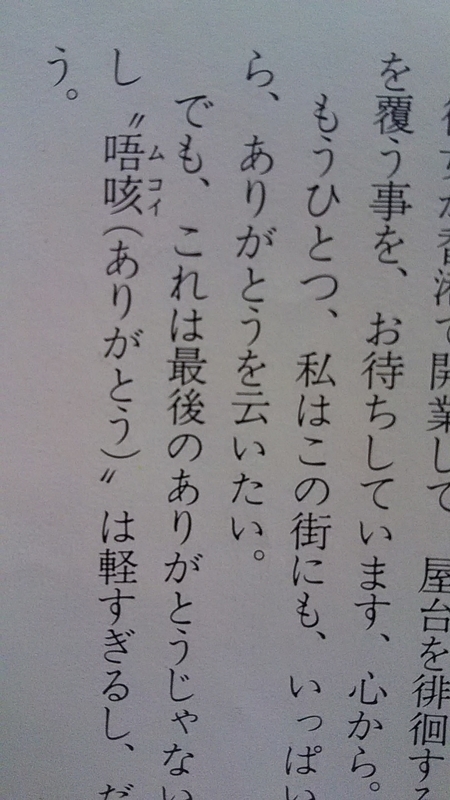 香港で開業して 屋台を徘徊する
を覆う事を、お待ちしています、心から。
もうひとつ、私はこの街にも、いっぱい
ら、ありがとうを云いたい。
でも、これは最後のありがとうじゃない
ムコイ
し〝唔咳(ありがとう)〟は軽すぎるし、だ
う。